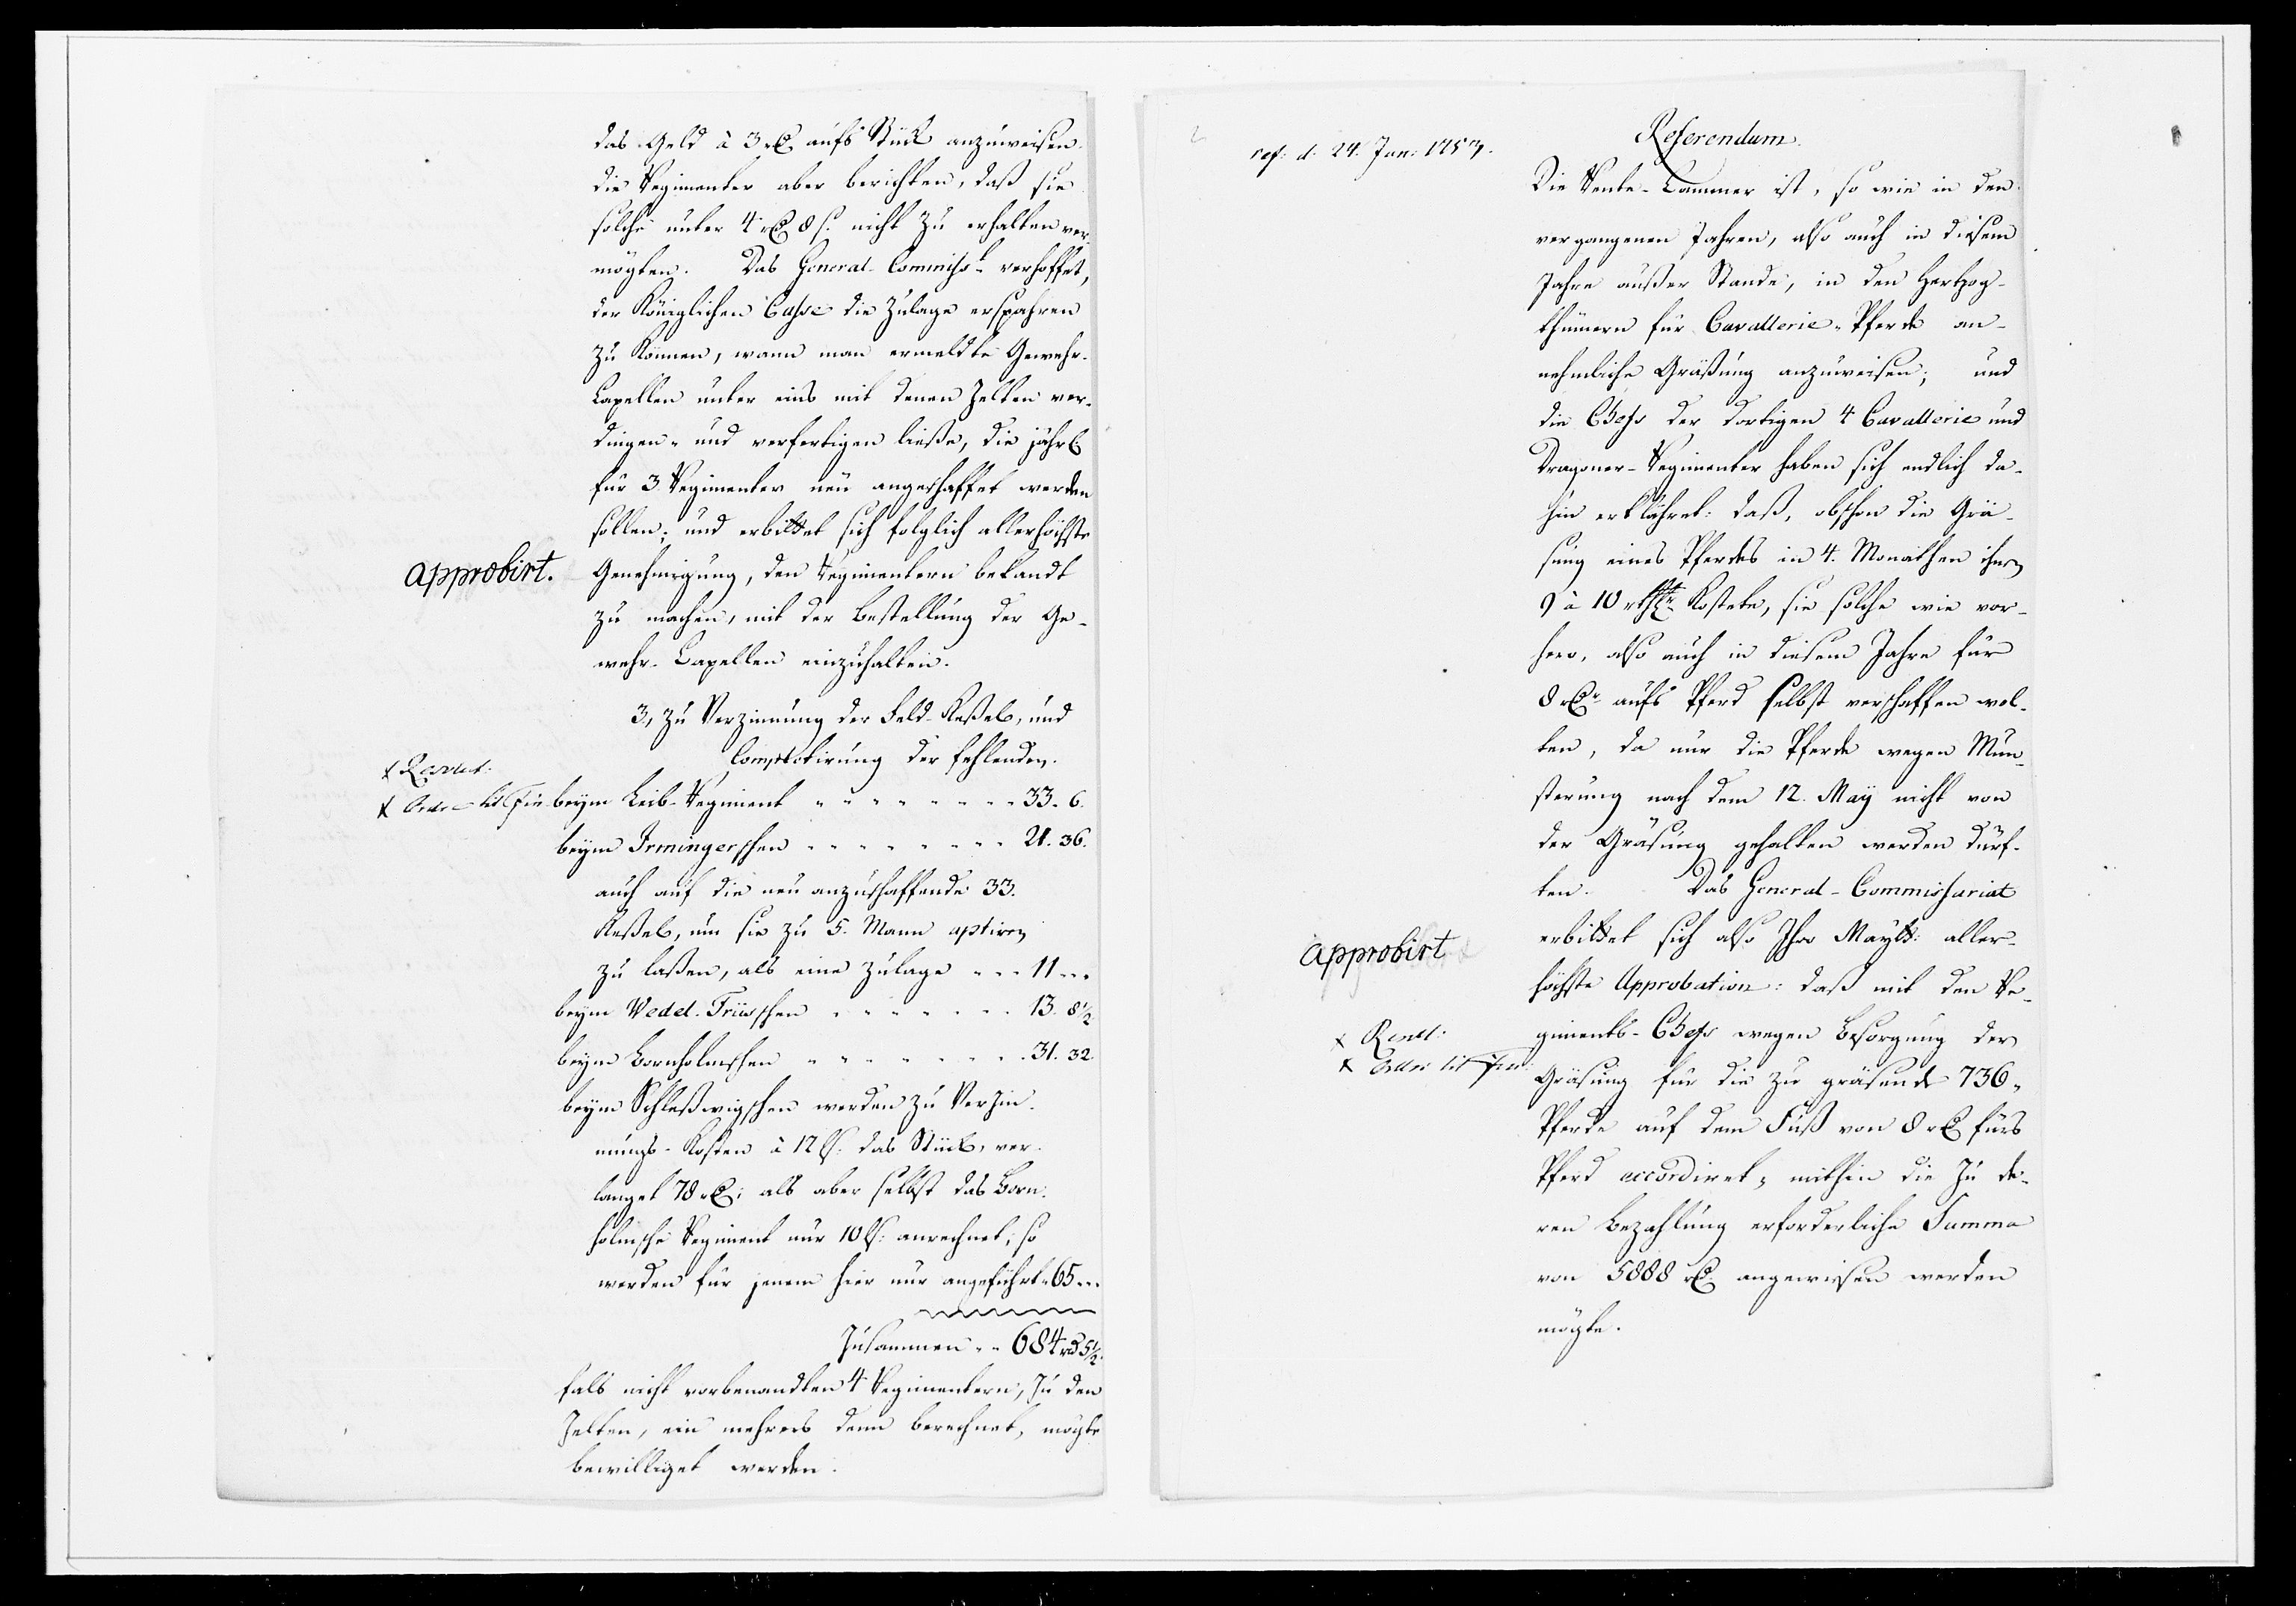 das Geld à 3 rC aufs Stück anzuweisen.
die Regimenter aber berichten, daß sie
solche unter 4 rC 8 ß. nicht zu erhalten ver-
mögten. Das General-Commisst. verhoffet,
der Königlichen Casse die Zulage ersparen
zu können, wann man ermeldte Gewehr-
Capellen unter eins mit denen Zelten ver-
dingen- und verfertigen ließe, die jährl
für 3 Regimenter neu angeschaffet werden
sollen; und erbittet sich folglich allerhöchste
approbirt. Genehmigung, den Regimentern bekandt
zu machen, mit der Bestellung der Ge-
wehr-Capellen einzuhalten.
3, zu Verzinnung der Feld-Keßels, und
Completirung der fehlenden.
beym Leib-Regiment 33. 6.
beym Irmingerschen 21. 36.
auch auf die neu anzuschaffende 33.
Keßels, um sie zu 5. Mann aptiren
zu laßen, als eine Zulage 11
beym Wedel-Friisschen 13. 8½
beym Bornholmschen 31. 32.
beym Schleßwigschen werden zu Verzin-
nungs-Kosten à 12 ß. das Stück, ver-
langet 78 rC; als aber selbst das Born-
holmsche Regiment nur 10 ß. anrechnet, so
werden für jenem hier nur angeführt 65
Zusammen 684 rd 5½.
fals nicht vorbenandten 4 Regimentern, zu den
Zelten, ein mehrers denn berechnet, mögte
bewilliget werden.
ref: d. 24. Jan: 1753.
Referendum.
Die Rente-Cammer ist, so wie in den
vergangenen Jahren, also auch in diesem
Jahre außer Stande, in den Hertzog-
thümern für Cavallerie-Pferde an-
nehmliche Gräßung anzuweisen; und
die Chefs der dortigen 4 Cavallerie und
Dragoner-Regimenter haben sich endlich da-
hin erklähret: daß, obschon die Grä-
sung eines Pferdes in 4. Monathen ihnen
9 à 10 rthlr. kostete, sie solche wie vor-
hero, also auch in diesem Jahre für
8 rC aufs Pferd selbst verschaffen wol-
ten, da nur die Pferde wegen Mun-
sterung nach dem 12. May nicht von
der Gräsung gehalten werden dürf-
ten. Das General-Commissariat
erbittet sich also Ihro Maytt: aller-
approbirt
höchste Approbation: daß mit den Re-
giments-Chefs wegen Besorgung der
Gräsung für die zu gräsende 736
Pferde auf dem Fuß von 8 rC fürs
Pferd accordiret, mithin die zu de-
ren Bezahlung erforderliche Summa
von 5888 rC angewiesen werden
mögte.